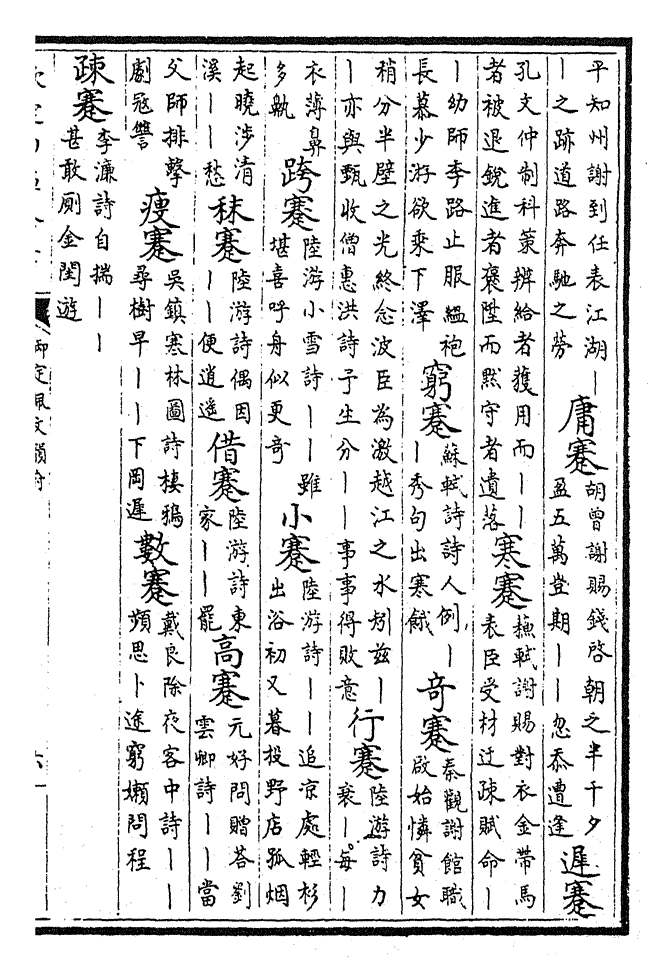 平知州謝到任表江湖｜
｜之跡道路奔馳之勞
庸蹇
胡曾謝賜錢啓朝之半千夕
盈五萬登期｜｜忽忝遭逢
遲蹇
孔文仲制科策辨給者獲用而｜｜
者被退銳進者褒陞而黙守者遺落
寒蹇
蘇軾謝賜對衣金帶馬
表臣受材迂疎賦命｜
｜幼師李路止服緼袍
長慕少游欲乘下澤
窮蹇
蘇軾詩詩人例｜
｜秀句出寒餓
奇蹇
秦觀謝館職
啟始憐貧女
稍分半壁之光終念波臣為激越江之水矧兹｜
｜亦與甄收僧惠洪詩予生分｜｜事事得敗意
行蹇
陸游詩力
衰｜每｜
衣薄鼻
多鼽
跨蹇
陸游小雪詩｜｜雖
堪喜呼舟似更奇
小蹇
陸游詩｜｜追凉處輕衫
出浴初又暮投野店孤烟
起曉涉清
溪｜｜愁
秣蹇
陸游詩偶因
｜｜便逍遥
借蹇
陸游詩東
家｜｜罷
高蹇
元好問贈荅劉
雲卿詩｜｜當
父師排擊
劇冦讐
瘦蹇
吳鎮寒林圖詩棲鴉
尋樹早｜｜下岡遲
數蹇
戴良除夜客中詩｜｜
頻思卜途窮嬾問程
疎蹇
李濂詩自揣｜｜
甚敢厠金閨遊